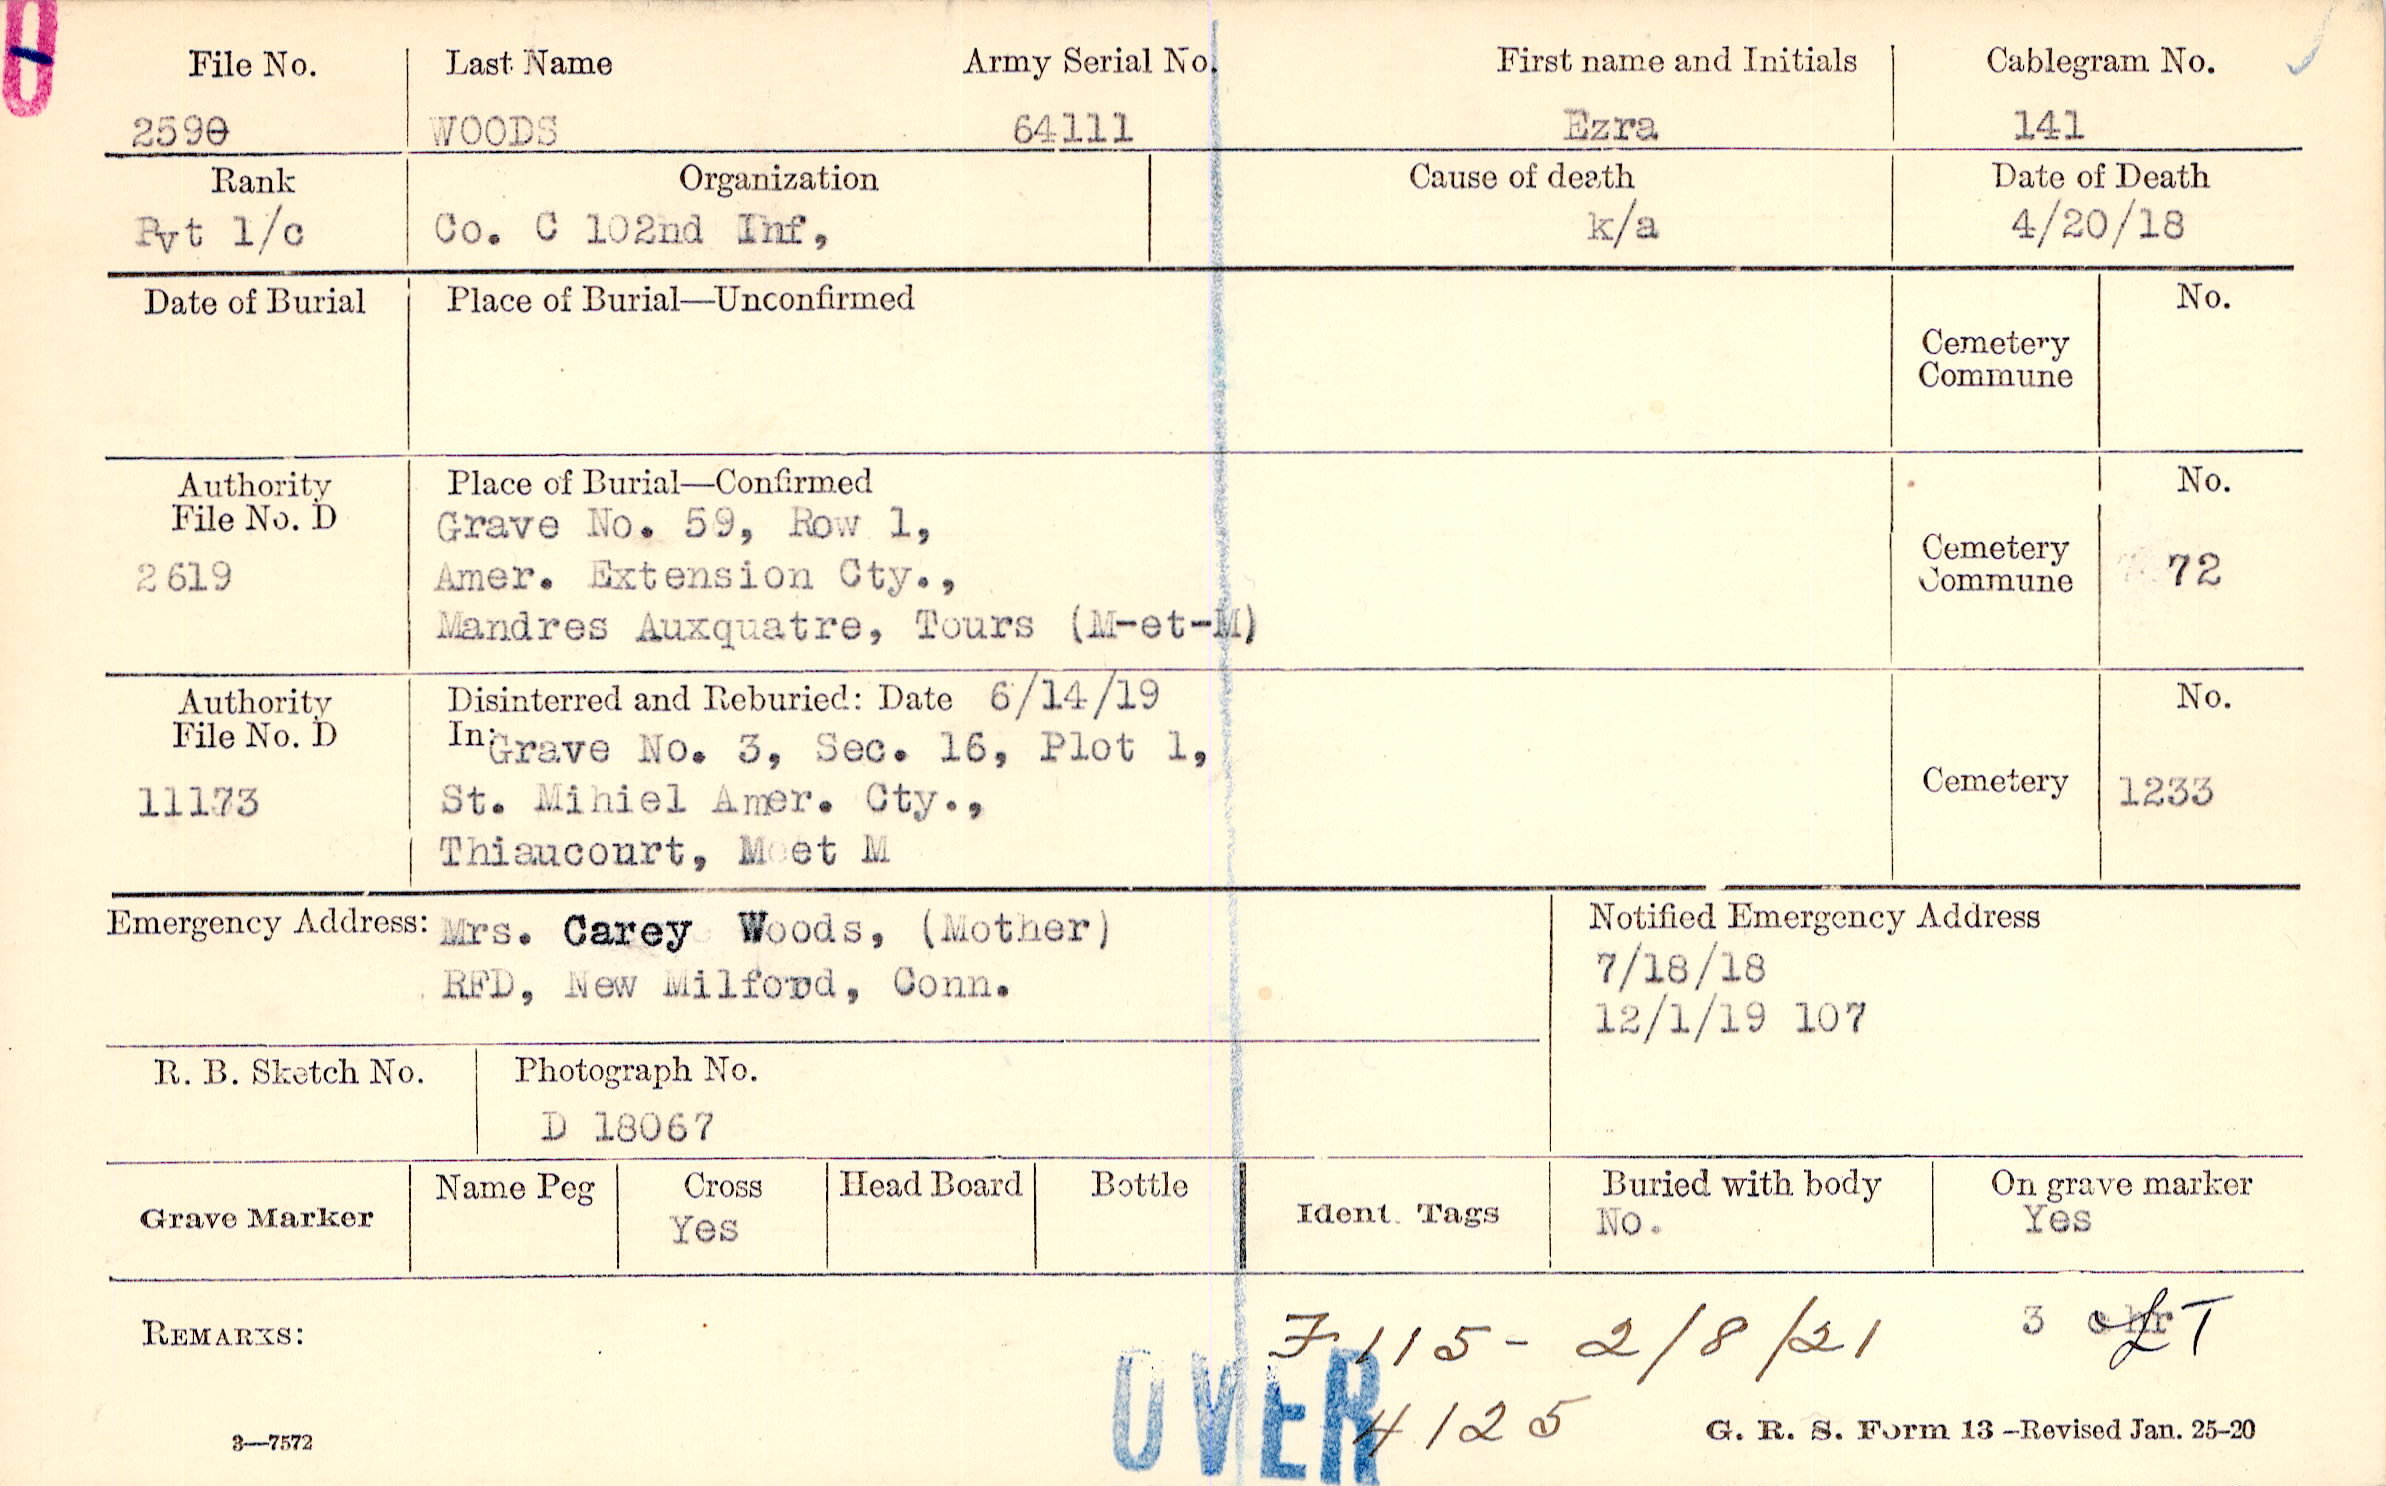 File No. Last Name Army Serial No. First name and Initials Cablegram No.
2590 WOODS 64111 Ezra 141
Rank Organization Cause of death Date of Death
Pvt 1/c Co. C 102nd Inf, k/a 4/20/18
Date of Burial Place of Burial—Unconfirmed No.
Cemetery
Commune
Authority Place of Burial—Confirmed No.
File No. D Grave No. 59, Row 1,
2619 Amer. Extension Cty., Cemetery
Commune 72
Mandres Auxquatre, Tours (M-et-M)
Authority Disinterred and Reburied: Date 6/14/19 No.
File No. D In: Grave No. 3, Sec. 16, Plot 1,
11173 St. Mihiel Amer. Cty., Cemetery 1233
Thiaucourt, M et M
Emergency Address: Mrs. Carey Woods, (Mother) Notified Emergency Address
RFD, New Milford, Conn. 7/18/18
12/1/19 107
R. B. Sketch No. Photograph No.
D 18067
Grave Marker Name Peg Cross Head Board Bottle Ident. Tags Buried with body On grave marker
Yes No. Yes
REMARKS: F 115 - 2/8/21 3
OVER 4125
3—7572 G. R. S. Form 13 —Revised Jan. 25-20